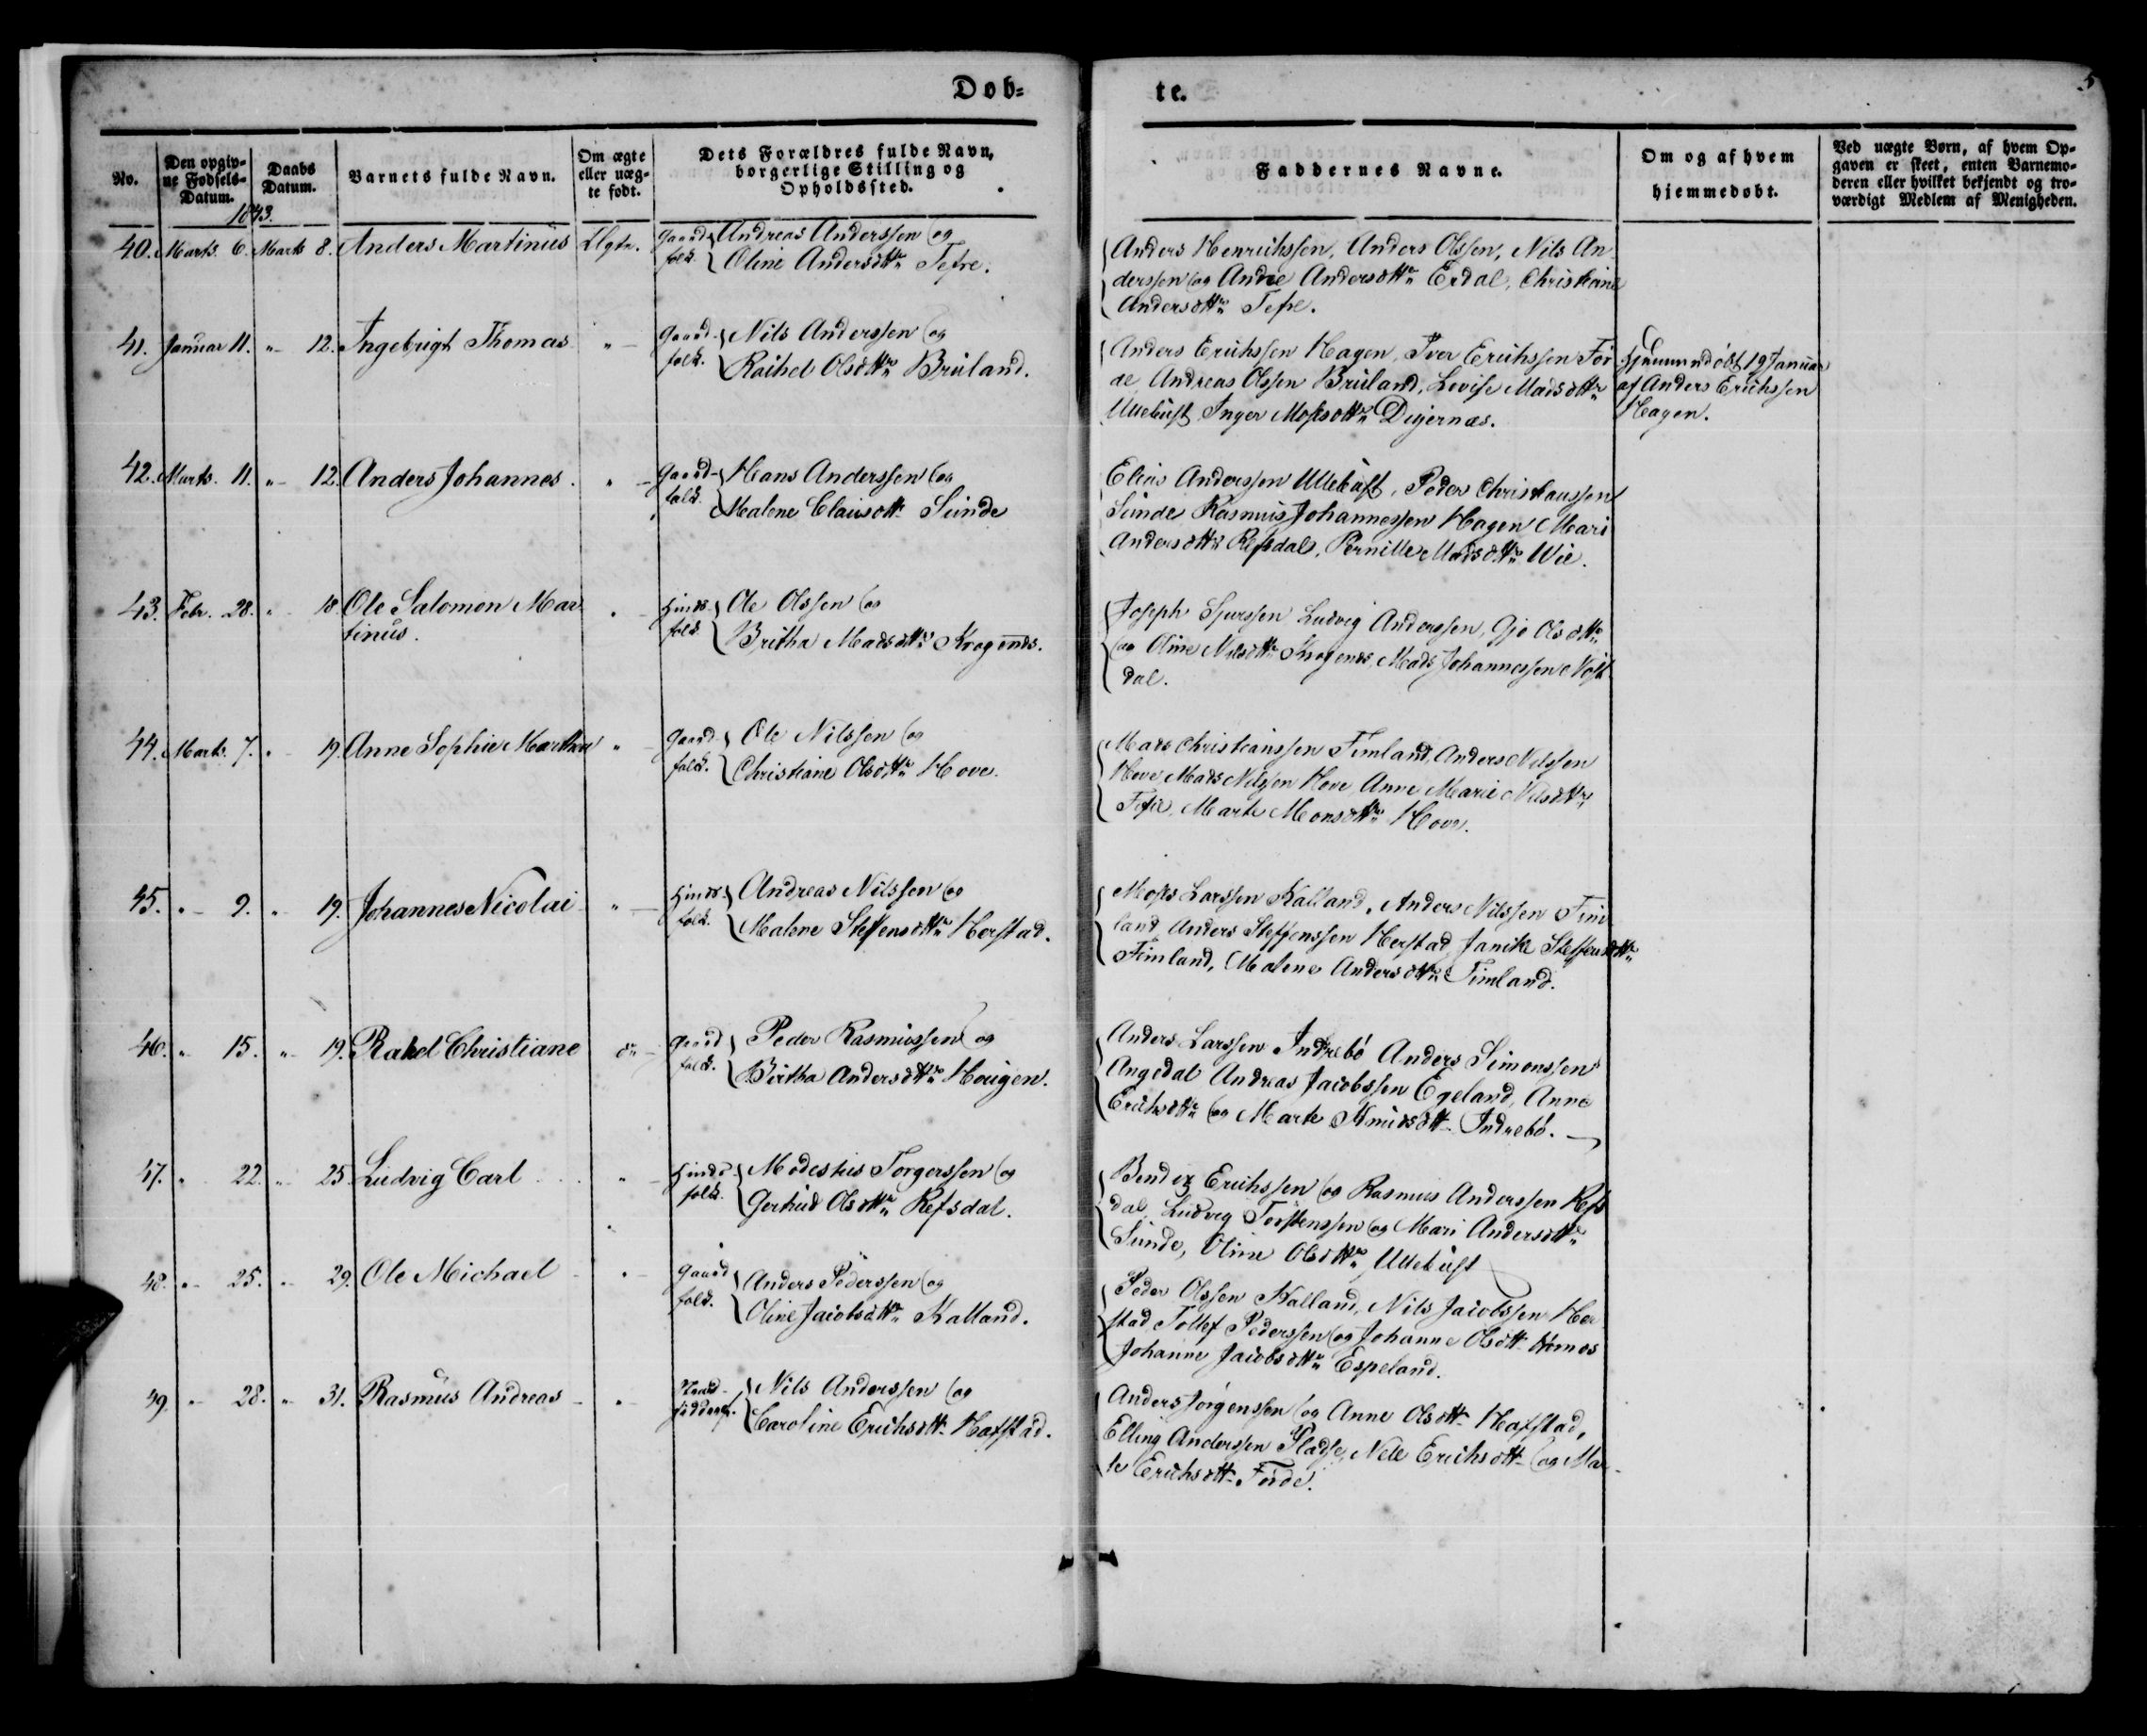 Dob=
te.
5
No.
Den opgiv-
ne Fødsels-
Datum.
Daabs
Datum.
Barnets fulde Navn.
Om ægte
eller uæg-
te født.
Dets Forældres fulde Navn,
borgerlige Stilling og
Opholdssted.
Faddernes Navne.
Om og af hvem
hjemmedøbt.
Ved uægte Børn, af hvem Op-
gaven er skeet, enten Barnemo-
deren eller hvilket bekjendt og tro-
værdigt Medlem af Menigheden.
1843.
40. Marts. 6. Marts 8. Anders Martinus
Gaard folk. Andreas Anderssen og
Oline Andersdttr Tefre.
Anders Henrichssen, Anders Olssen, Nils An-
derssen og Andersdttr Erdal, Christiane
Andersdttr Tefre.
41. Januar 11. " 12. Ingebrigt Thomas "
Gaard- folk. Nils Anderssen og
Rachel Olsdttr Bruland.
Anders Erichssen Hagen, Iver Erichssen För
de Andreas Olssen Bruland, Lovise Madsdttr
Ullebust Inger Mossdttr Digernæs.
Hjemmedöbt 19 Januar
af Anders Erichssen
Hagen.
42. Marts. 11. " 12. Anders Johannes. "
Gaard- folk. Hans Anderssen og
Malene Clausdttr Sunde
Elias Anderssen Ullebust, Peder Christianssen
Sunde Rasmus Johannessen Hagen Mari
Andersdttr Refsdal, Pernille Madsdttr Wie.
43. Febr. 28. " 18 Ole Salomon Mar
tinus.
Huus- folk. Ole Olssen og
Britha Madsdttr
Joseph Ludvig Anderssen, Olsdttr
og Oline Nilsdttr Mads Johannessen
dal.
44. Marts. 7. " 19. Anne Sophie Martha "
Gaard- folk. Ole Nilssen og
Christiane Olsdttr Hove.
Mads Christianssen Fimland, Anders Nilssen
Hove Mads Nilssen Hove Anne Marie Nilsdttr
Tefre, Marte Monsdttr Hove.
45. " 9. " 19. Johannes Nicolai "
Huus- folk. Andreas Nilssen og
Malene Steffensdttr Herstad.
Moss Larssen Kalland, Anders Nilssen Fim
land Anders Steffenssen Herstad, Janike Steffensdttr
Fimland, Malene Andersdttr Fimland.
46. " 15. " 19. Rakel Christiane do
Gaard folk. Peder Rasmussen og
Britha Andersdttr Hougen.
Anders Larssen Indrebö Anders Simonssen
Angedal Andreas Jacobssen Egeland, Anne
Erichsdttr og Marte Knudsdttr Indrebö.
47. " 22. " 25. Ludvig Carl "
Huus- folk. Modestus Torgerssen og
Gertrud Olsdttr Refsdal.
Bendix Erichssen og Rasmus Anderssen Refs
dal, Ludvig Torstenssen og Mari Andersdttr
Sunde, Oline Olsdttr Ullebust
48. " 25. " 29. Ole Michael "
Gaard folk. Anders Pederssen og
Oline Jacobsdttr Kalland.
Peder Olssen Kalland, Nils Jacobssen Her
stad Tollef Pederssen og Johanne Olsdttr Hornes
Johanne Jacobsdttr Espeland.
49. " 28. " 31. Rasmus Andreas "
Nils Anderssen og
Caroline Erichsdttr Hafstad.
Anders Jörgenssen og Anne Olsdttr Hafstad,
Elling Anderssen Nille Erichsdttr og Mar-
te Erichsdttr Förde.